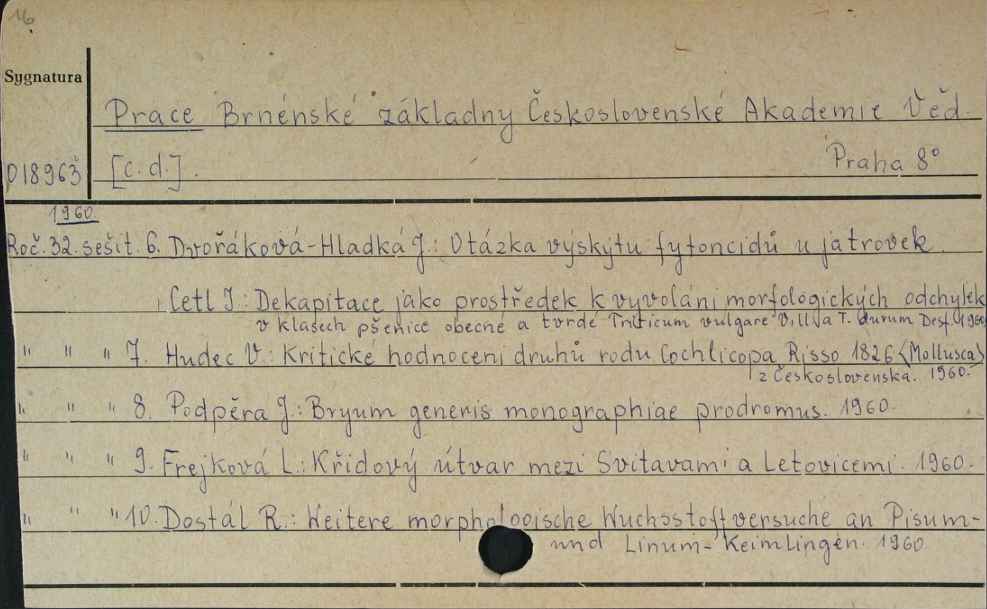 16
Sygnatura
Prace Brněnské základny Československé Akademie Věd
018963 [c.d.]. Praha 8°
1960
Roč. 32. sešit. 6. Dvořáková-Hladká J.: Otázka výskytu fytoncidů u játrovek
Cetl I.: Dekapitace jako prostředek k vyvolání morfologických odchylek
v klasech pšenice obecné a tvrdé Triticum vulgare Vill a T. durum Desf. 1960
" " " 7. Hudec V.: Kritické hodnocení druhů rodu Cochlicopa Risso 1826 (Mollusca)
z Československa. 1960.
" " " 8. Podpěra J.: Bryum generis monographiae prodromus. 1960.
" " " 9. Frejková L.: Křídový útvar mezi Svitavami a Letovicemi. 1960.
" " " 10. Dostál R.: Weitere morphologische Wuchsstoffversuche an Pisum-
und Linum-Keimlingen. 1960